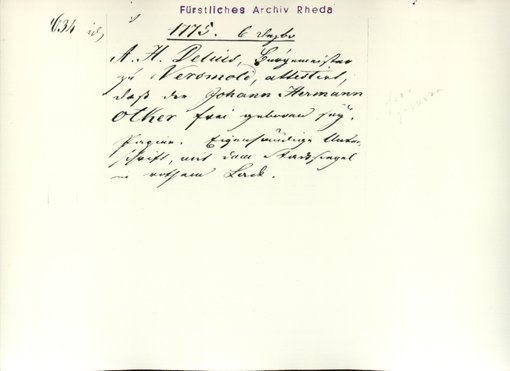 Fürstliches Archiv Rheda
634 1775. 6 Dezbr
A. H. Delius, Bürgermeister
zu Versmold, attestert,
daß der Johann Hermann
Otker frei geboren sey.
Papier. Eigenhändige Unter-
schrift, mit dem Stadtsiegel
in rothem Lack.
frei
geboren